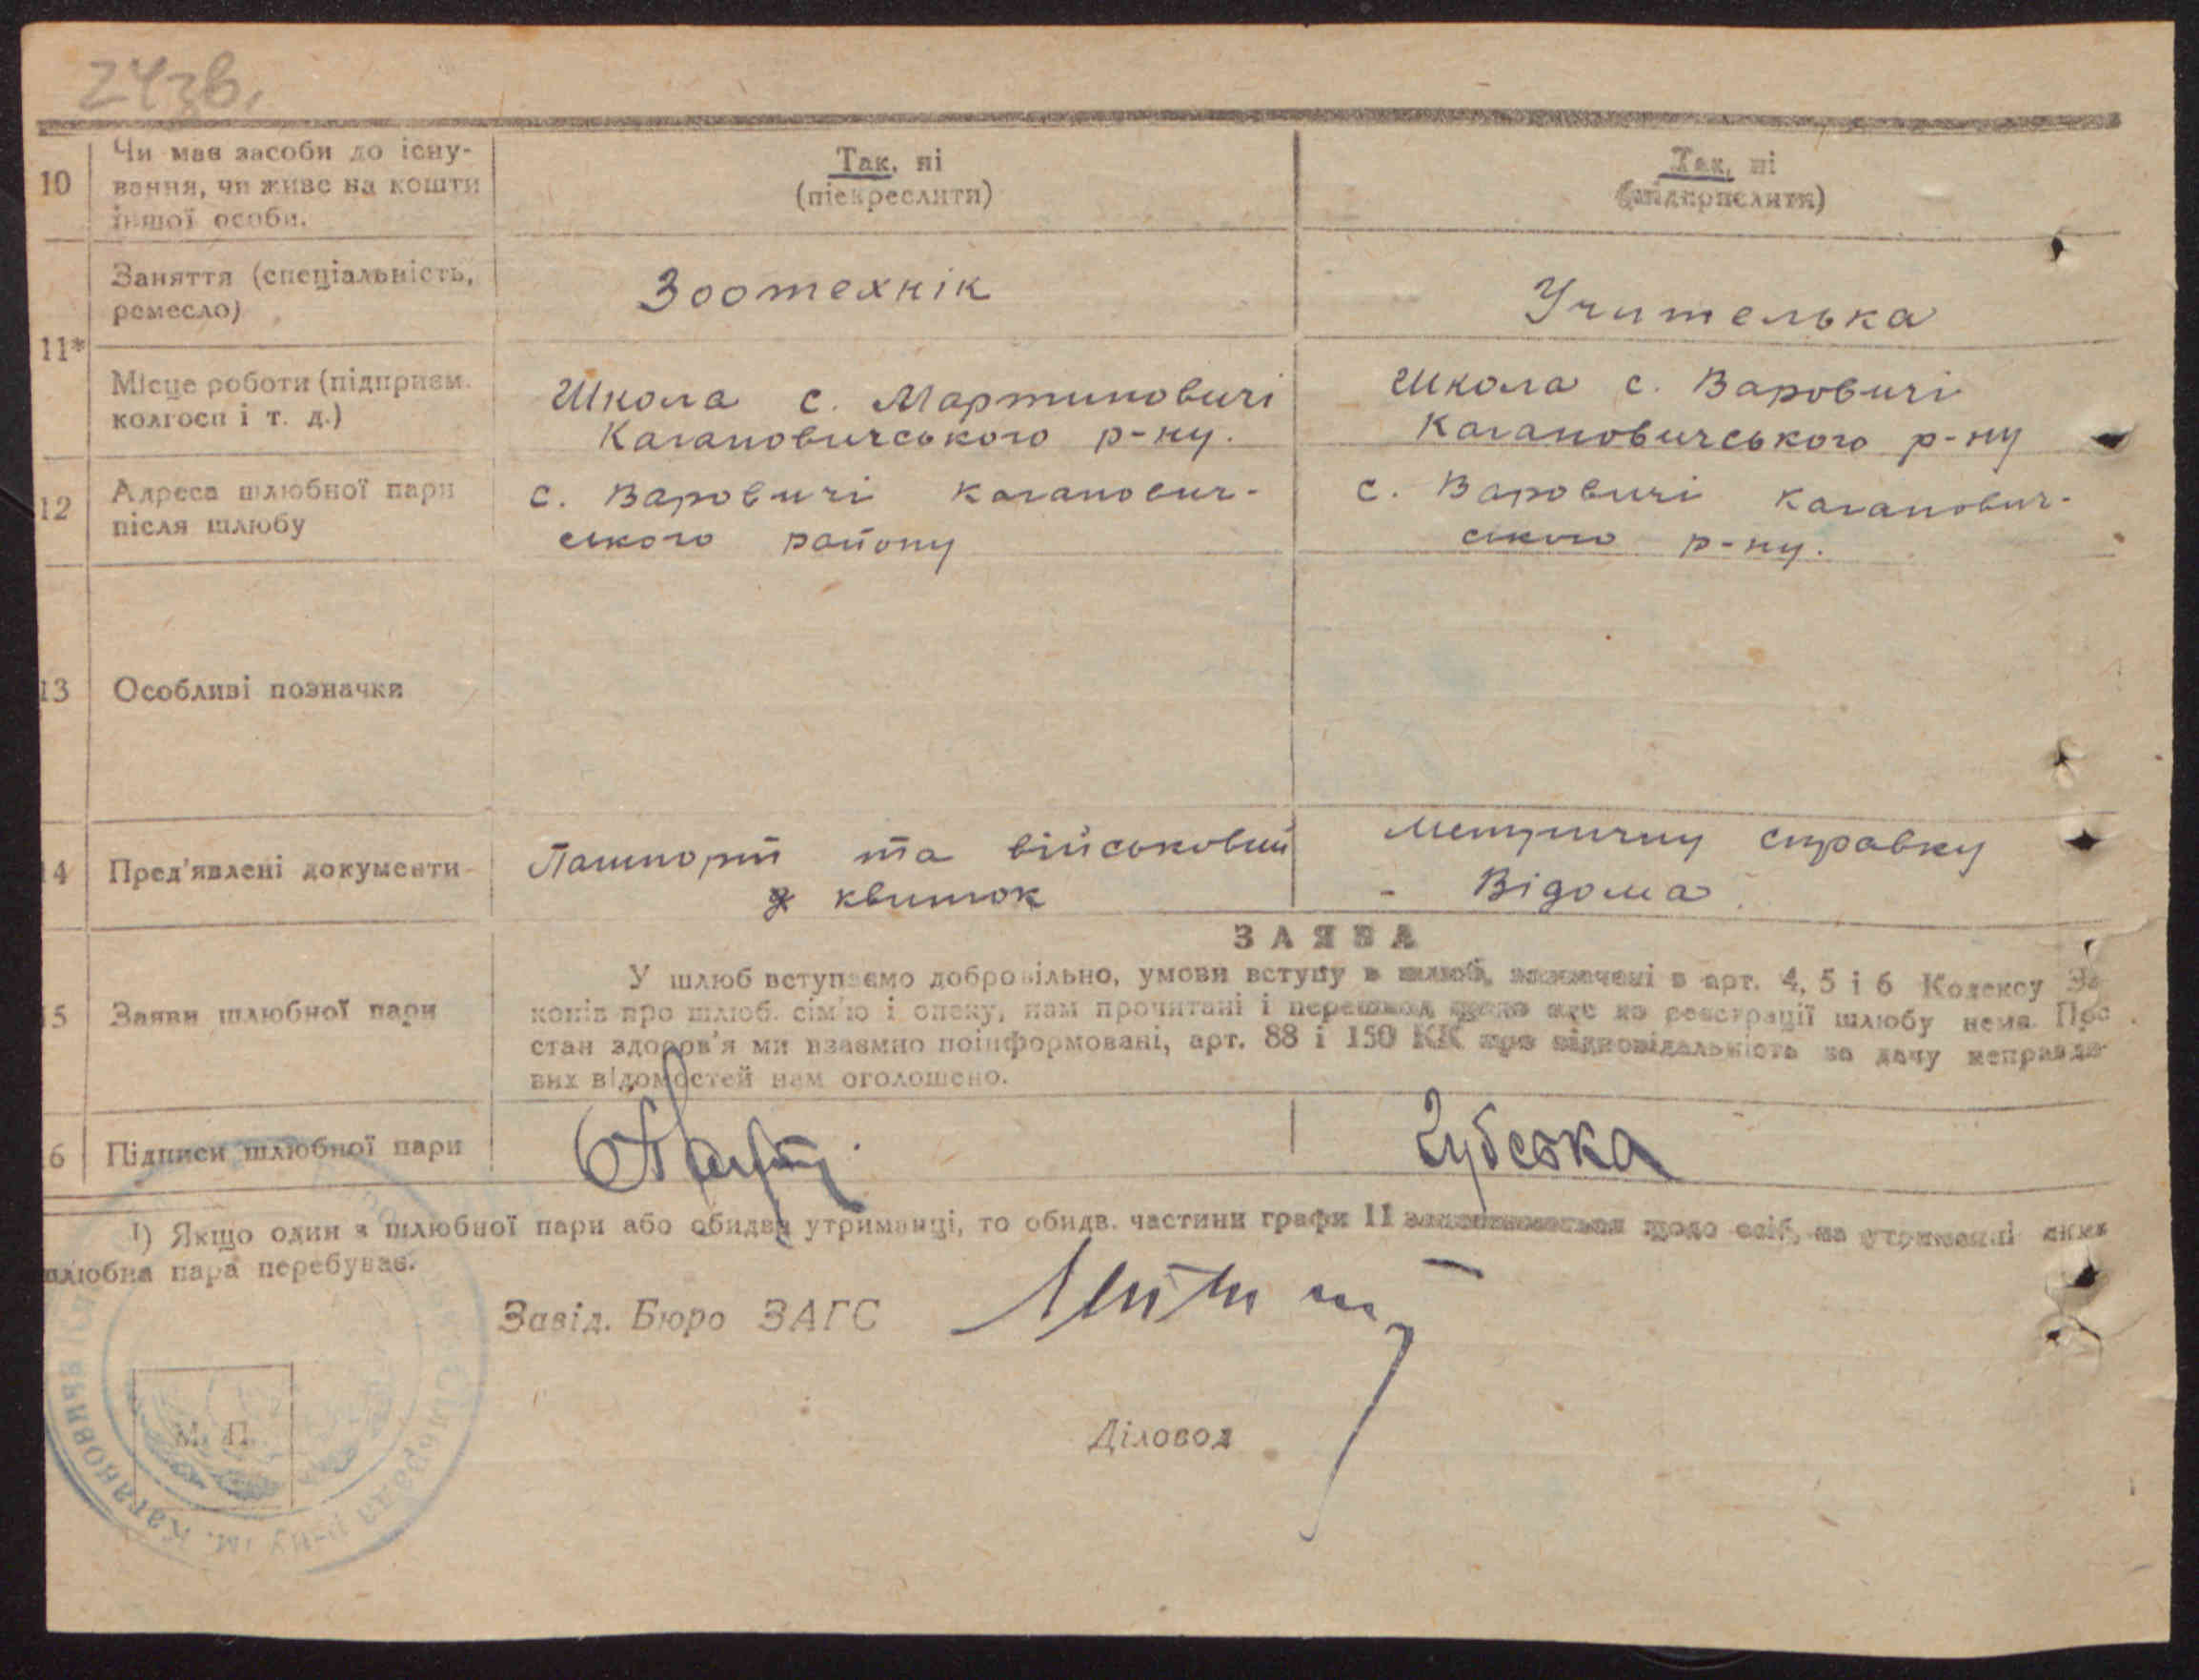 24зв.
10
Чи має засоби до існу-
вання, чи живе на кошти
іншої особи.
Так, ні
(пієкреслити)
Так, ні
11*
Заняття (спеціальність,
ремесло)
Зоотехнік
Учителька
Місце роботи (підприєм.
колгосп і т. д.)
Школа с. Мартиновичі
Кагановичського р-ну.
Школа с. Варовичі
Кагановичського р-ну
12
Адреса шлюбної пари
після шлюбу
с. Варовичі Каганович-
ського району
с. Варовичі Каганович-
ського р-ну.
13
Особливі позначки
14
Пред'явлені документи
Пашпорт та військовий
квиток
Метричну справку
- Відома
ЗАЯВА
15
Заяви шлюбної пари
У шлюб вступаємо добровільно, умови вступу в шлюб, зазначені в арт. 4, 5 і 6 Кодексу За
конів про шлюб. сім'ю і опеку, нам прочитані і перешкод щодо до реєстрації шлюбу нема. Про
стан здоров'я ми взаємно поінформовані, арт. 88 і 150 КК про відповідальність за дачу неправди-
вих відомостей нам оголошено.
16
Підписи шлюбної пари
1) Якщо один з шлюбної пари або обидва утриманці, то обидв. частини графи 11 щодо осіб, на утриманні яких
шлюбна пара перебуває.
Завід. Бюро ЗАГС
М. П.
Діловод
р-ну ім. Кагановича